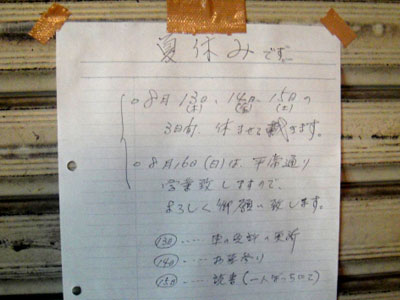 夏休みです。
○8月13日(金)、14日(土)、15日(土)の
3日間、休ませて戴きます。
○8月16日(日)は、平常通り
営業致しますので、
よろしく御願い致します。
13日……車の免許の更新
14日……お墓参り
15日……読書(一人ぼっちにて)